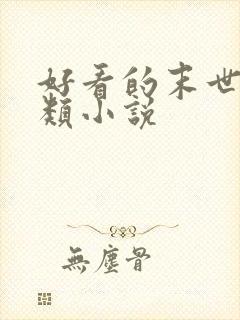 好看的末世
類小説
無塵骨